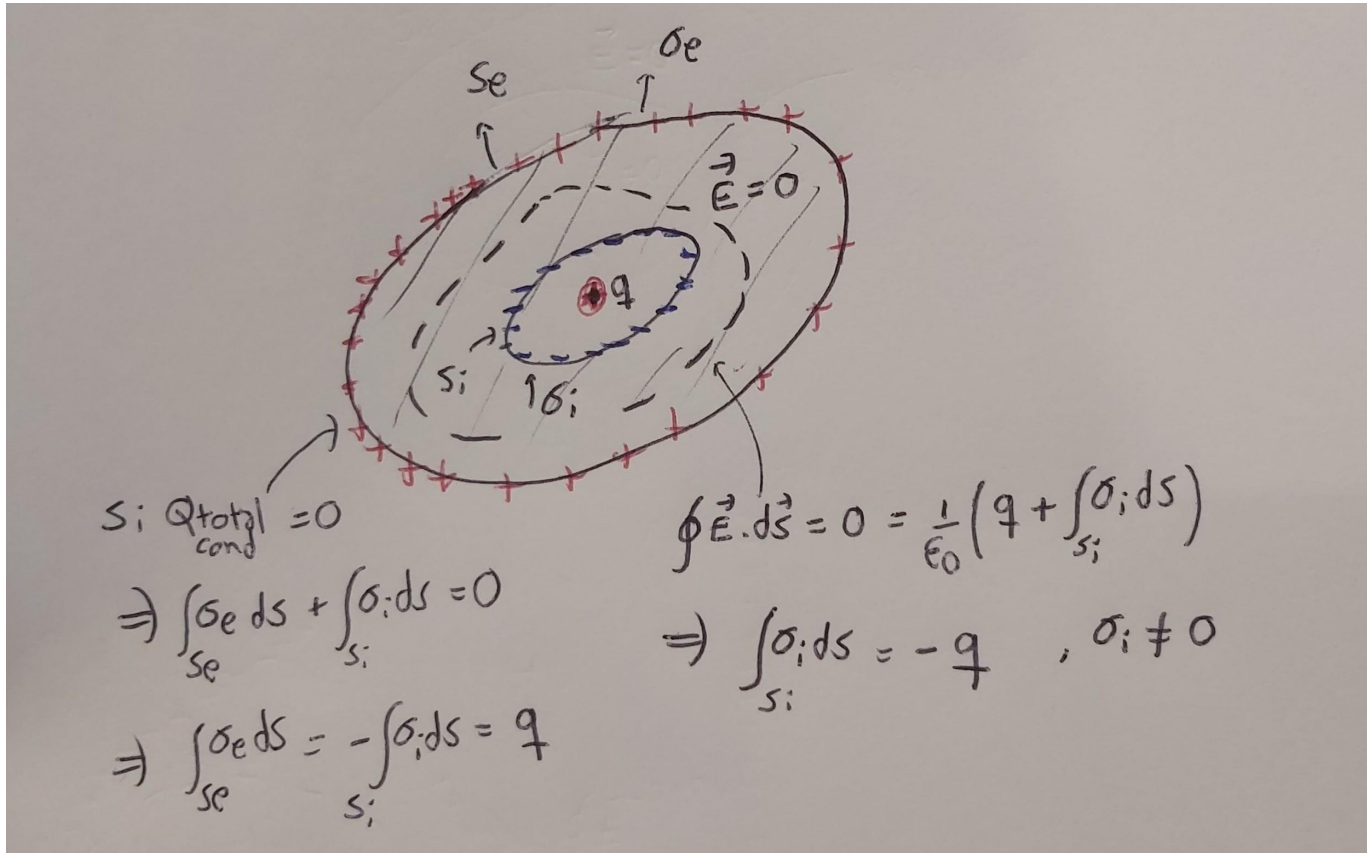 σe
Se
E⃗ = 0
q
Si
σi
Si Qtotal = 0
cond
⇒ ∫Se σe ds + ∫Si σi ds = 0
⇒ ∫Se σe ds = - ∫Si σi ds = q
∮ E⃗ . ds⃗ = 0 = 1/ε0 ( q + ∫Si σi ds )
⇒ ∫Si σi ds = - q , σi ≠ 0